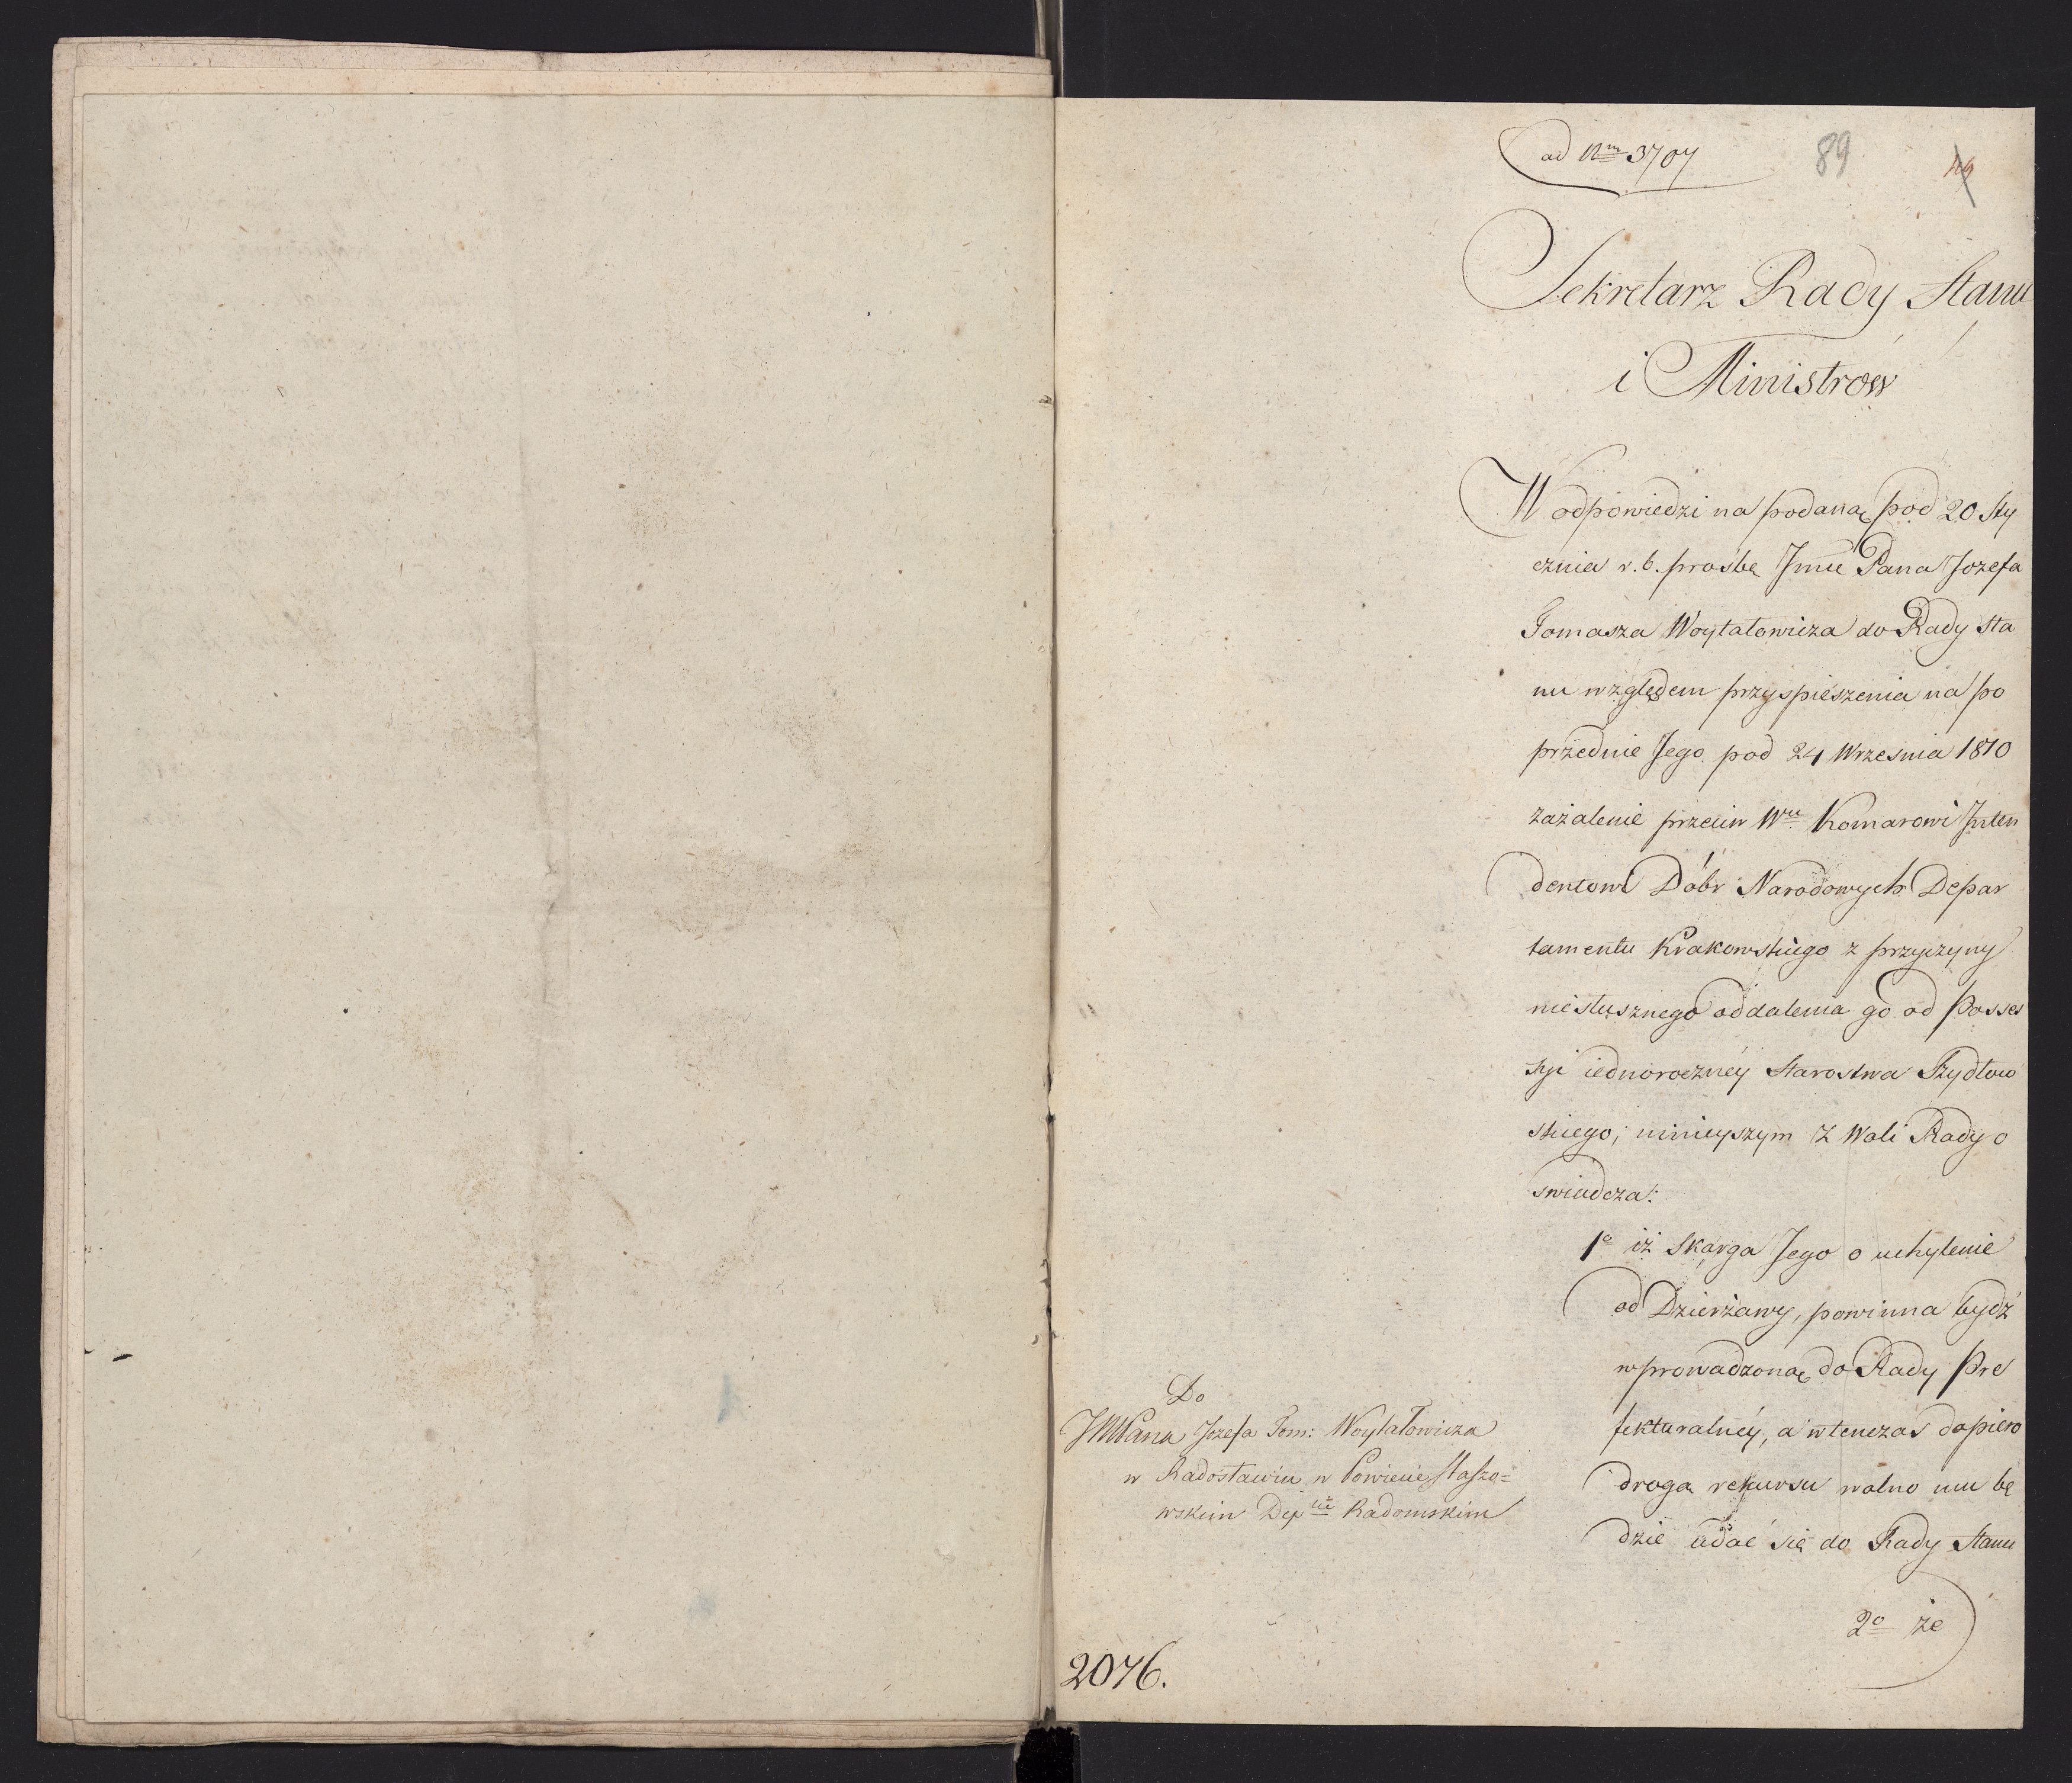 ad Nm 3707
89
Sekretarz Rady Stanu
i Ministrów
W odpowiedzi na podaną pod 20 Sty
cznia r. b. prośbę Jmć Pana Jozefa
Tomasza Woytałowicza do Rady Sta
nu względem przyspieszenia na po
przednie Jego pod 24 Września 1810
zażalenie przeciw Wu Komarowi Inten
dentowi Dóbr Narodowych Depar
tamentu Krakowskiego z przyczyny
niesłusznego oddalenia go od Posses
syi iednoroczney Starostwa Szydłow
skiego, ninieyszym z Woli Rady o
swiadcza:
1o iż Skarga Jego o uchylenie
od Dzierżawy, powinna bydź
wprowadzoną do Rady Pre
fekturalney, a wtenczas dopiero
drogą rekursu wolno mu bę
dzie udać się do Rady Stanu
2o że
Do
JMPana Jozefa Tom: Woytałowicza
w Radosławiu w Powiecie Staszo=
wskim Depcie Radomskim
2076.